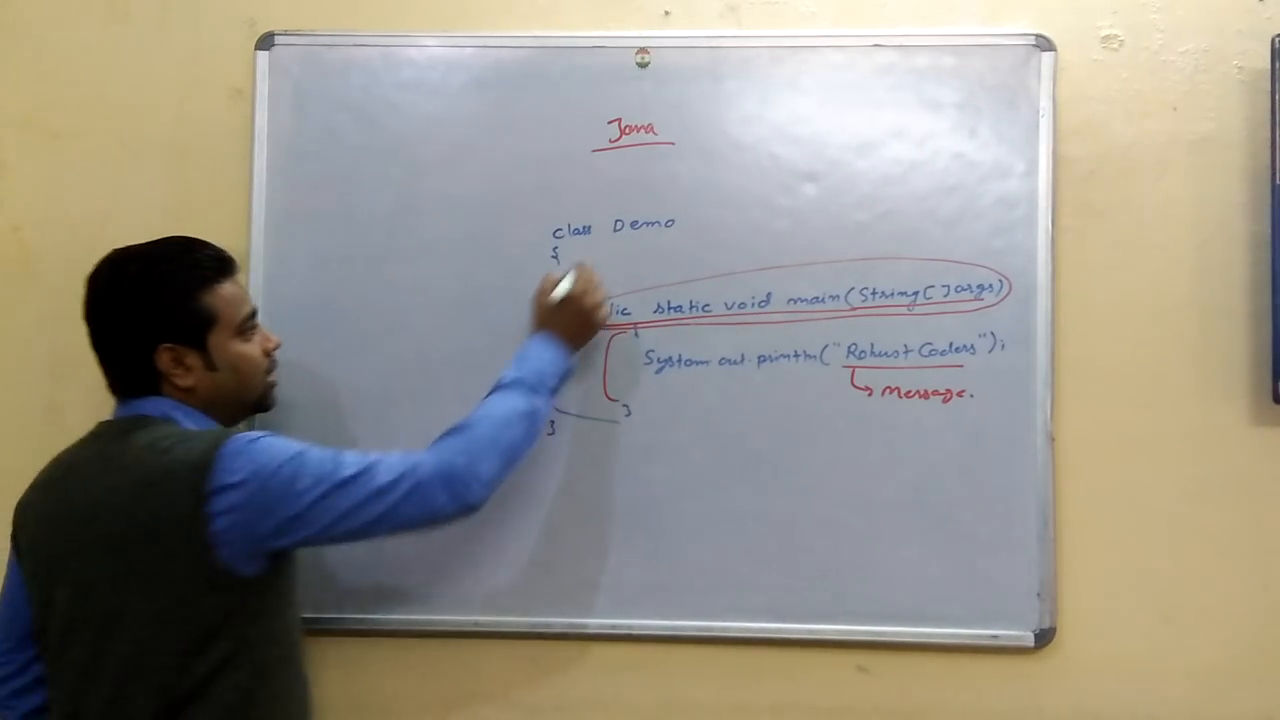 Java
class Demo
{
lic static void main(String[] args)
{
System.out.println("Robust Coders");
Message.
}
}